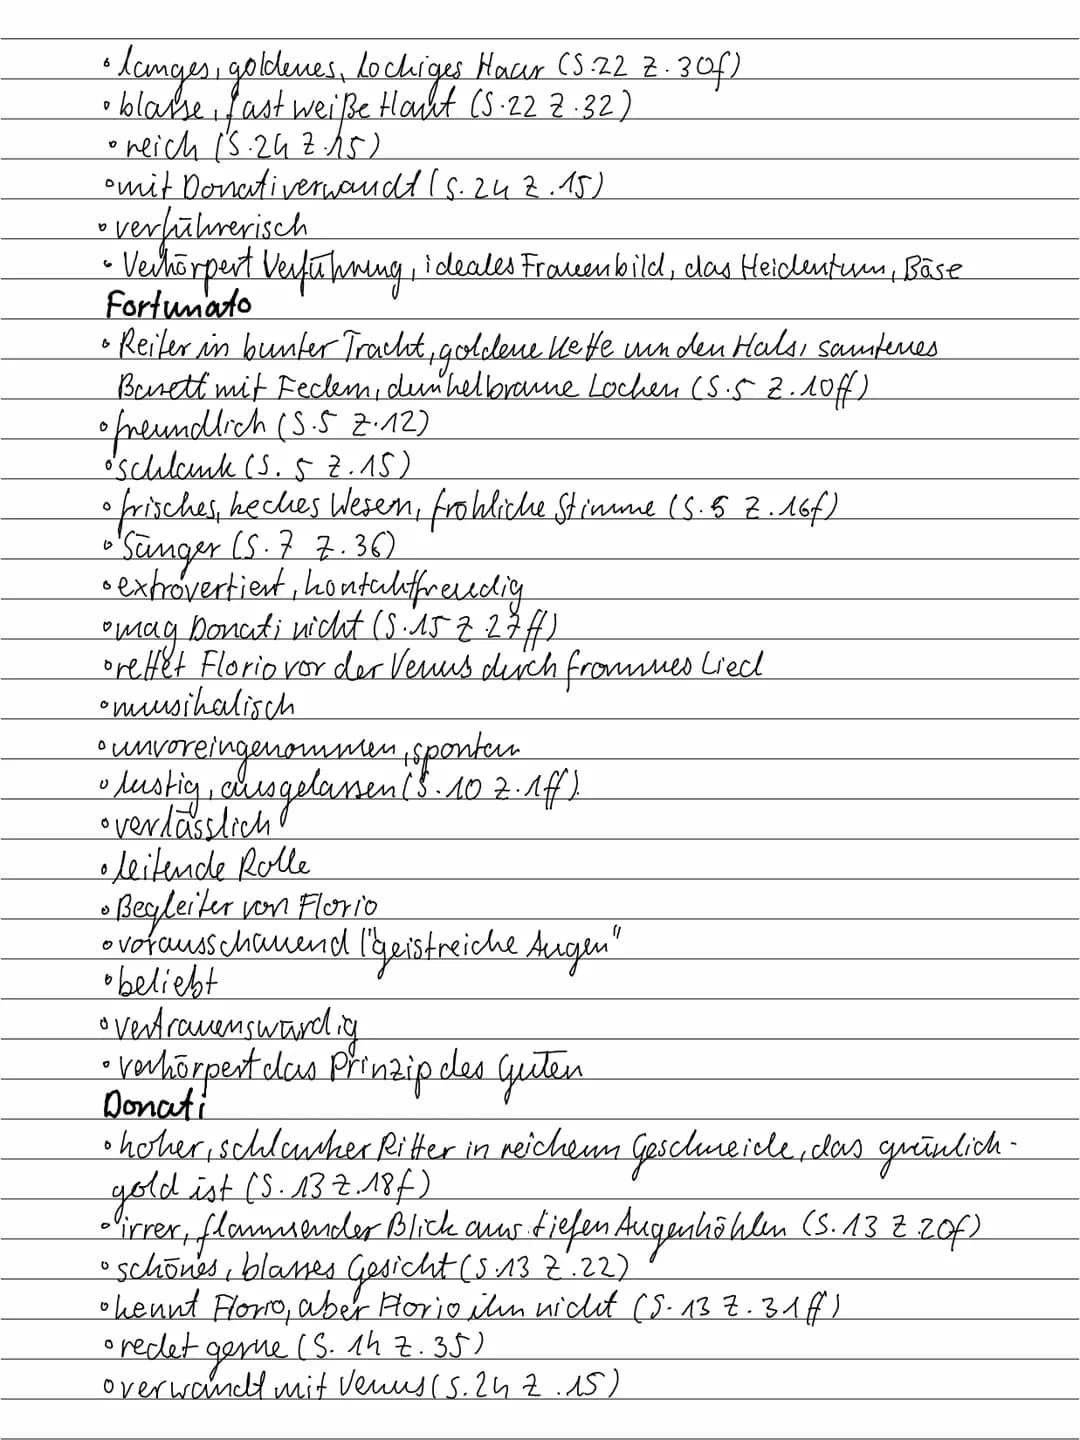 • langes, goldenes, lockiges Haar (S.22 Z.30f)
• blasse, fast weiße Haut (S.22 Z.32)
• reich (S.24 Z.15)
• mit Donati verwandt (S.24 Z.15)
• verführerisch
• Verkörpert Verführung, ideales Frauenbild, das Heidentum, Böse
Fortunato
• Reiter in bunter Tracht, goldene Kette um den Hals, samtenes
Barett mit Federn, dunkelbraune Locken (S.5 Z.10ff)
• freundlich (S.5 Z.12)
• schlank (S.5 Z.15)
• frisches, keckes Wesen, fröhliche Stimme (S.5 Z.16f)
• Sänger (S.7 Z.36)
• extrovertiert, kontaktfreudig
• mag Donati nicht (S.15 Z 27ff)
• rettet Florio vor der Venus durch frommes Lied
• musikalisch
• unvoreingenommen, spontan
• lustig, ausgelassen (S.10 Z.1ff)
• verlässlich
• leitende Rolle
• Begleiter von Florio
• vorausschauend ("geistreiche Augen"
• beliebt
• vertrauenswürdig
• verkörpert das Prinzip des Guten
Donati
• hoher, schlanker Ritter in reichem Geschmeide, das grünlich-
gold ist (S.13 Z.18f)
• irrer, flammender Blick aus tiefen Augenhöhlen (S.13 Z 20f)
• schönes, blasses Gesicht (S.13 Z.22)
• kennt Florio, aber Florio ihn nicht (S.13 Z.31ff)
• redet gerne (S.14 Z.35)
• verwandt mit Venus (S.24 Z.15)